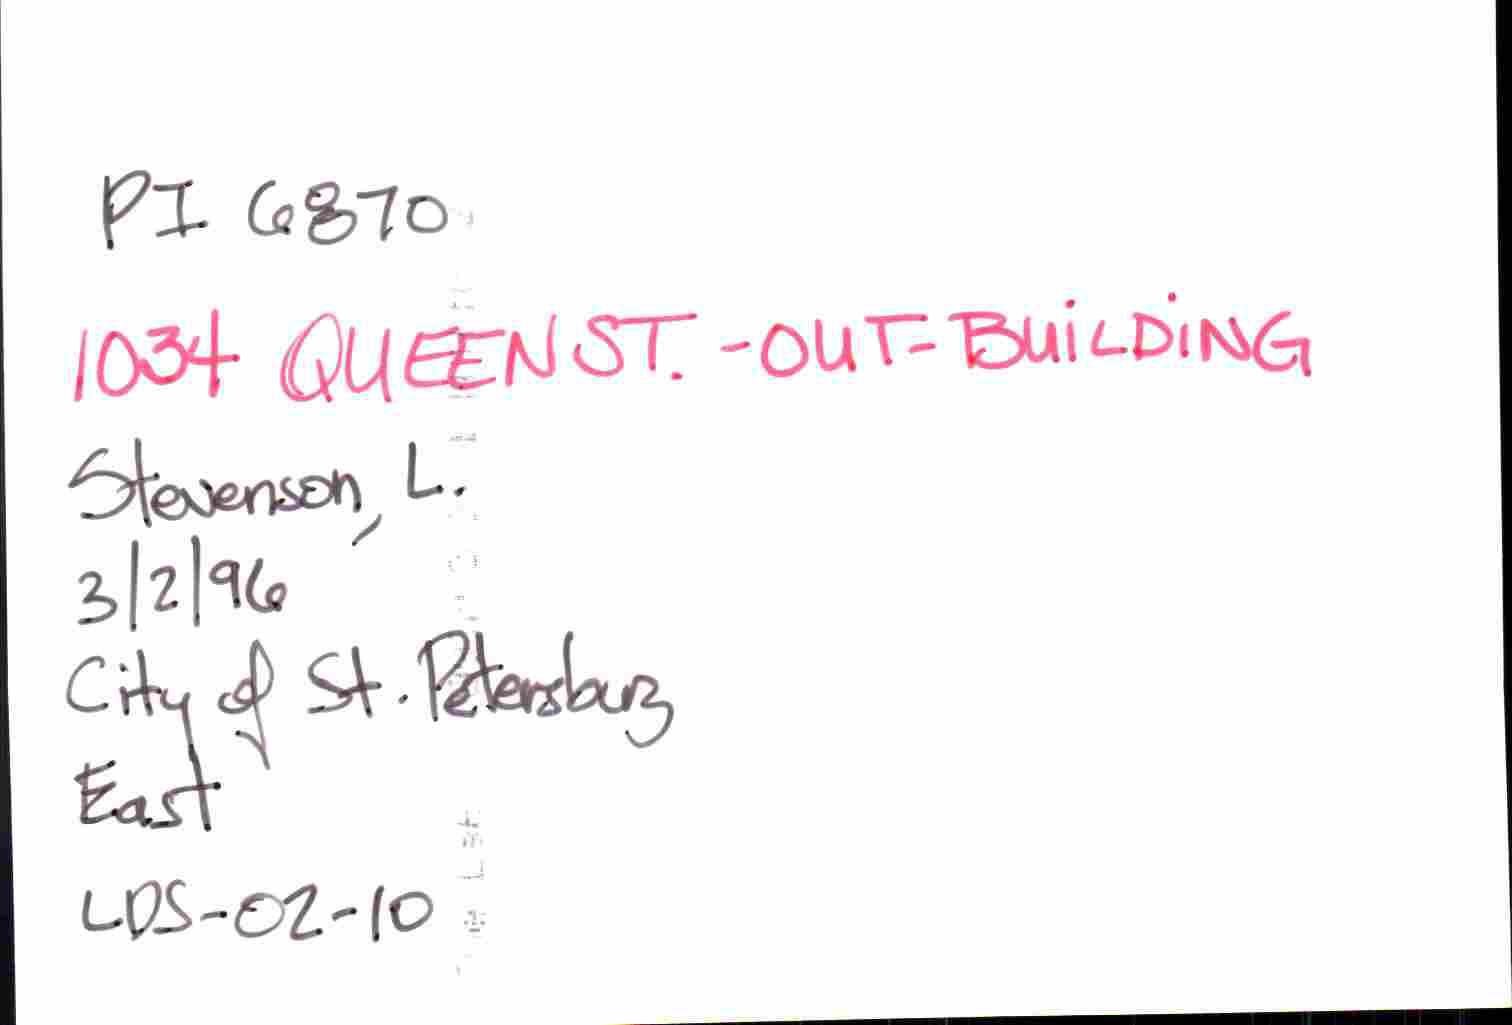 PI 6870
1034 QUEEN ST. - OUT-BUILDING
Stevenson, L.
3/2/96
City of St. Petersburg
East
LDS-02-10